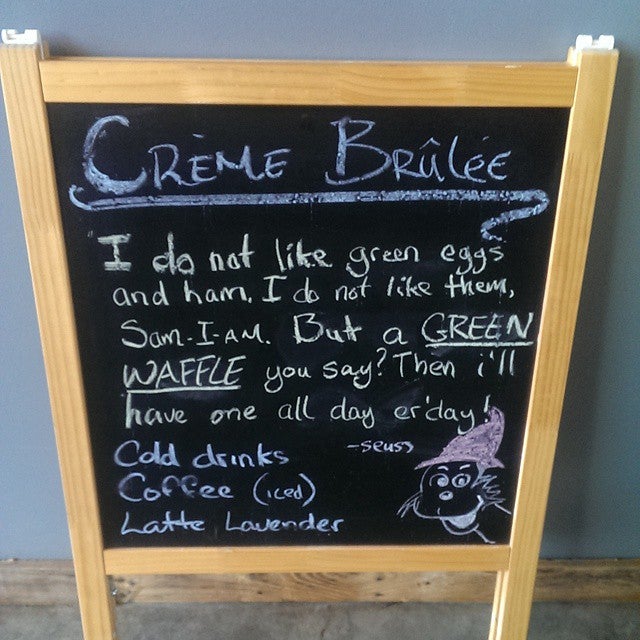 CRÈME BRÛLÉE
"I do not like green eggs
and ham. I do not like them,
Sam-I-AM. But a GREEN
WAFFLE you say? Then i'll
have one all day er'day!
-seuss
Cold drinks
Coffee (iced)
Latte Lavender